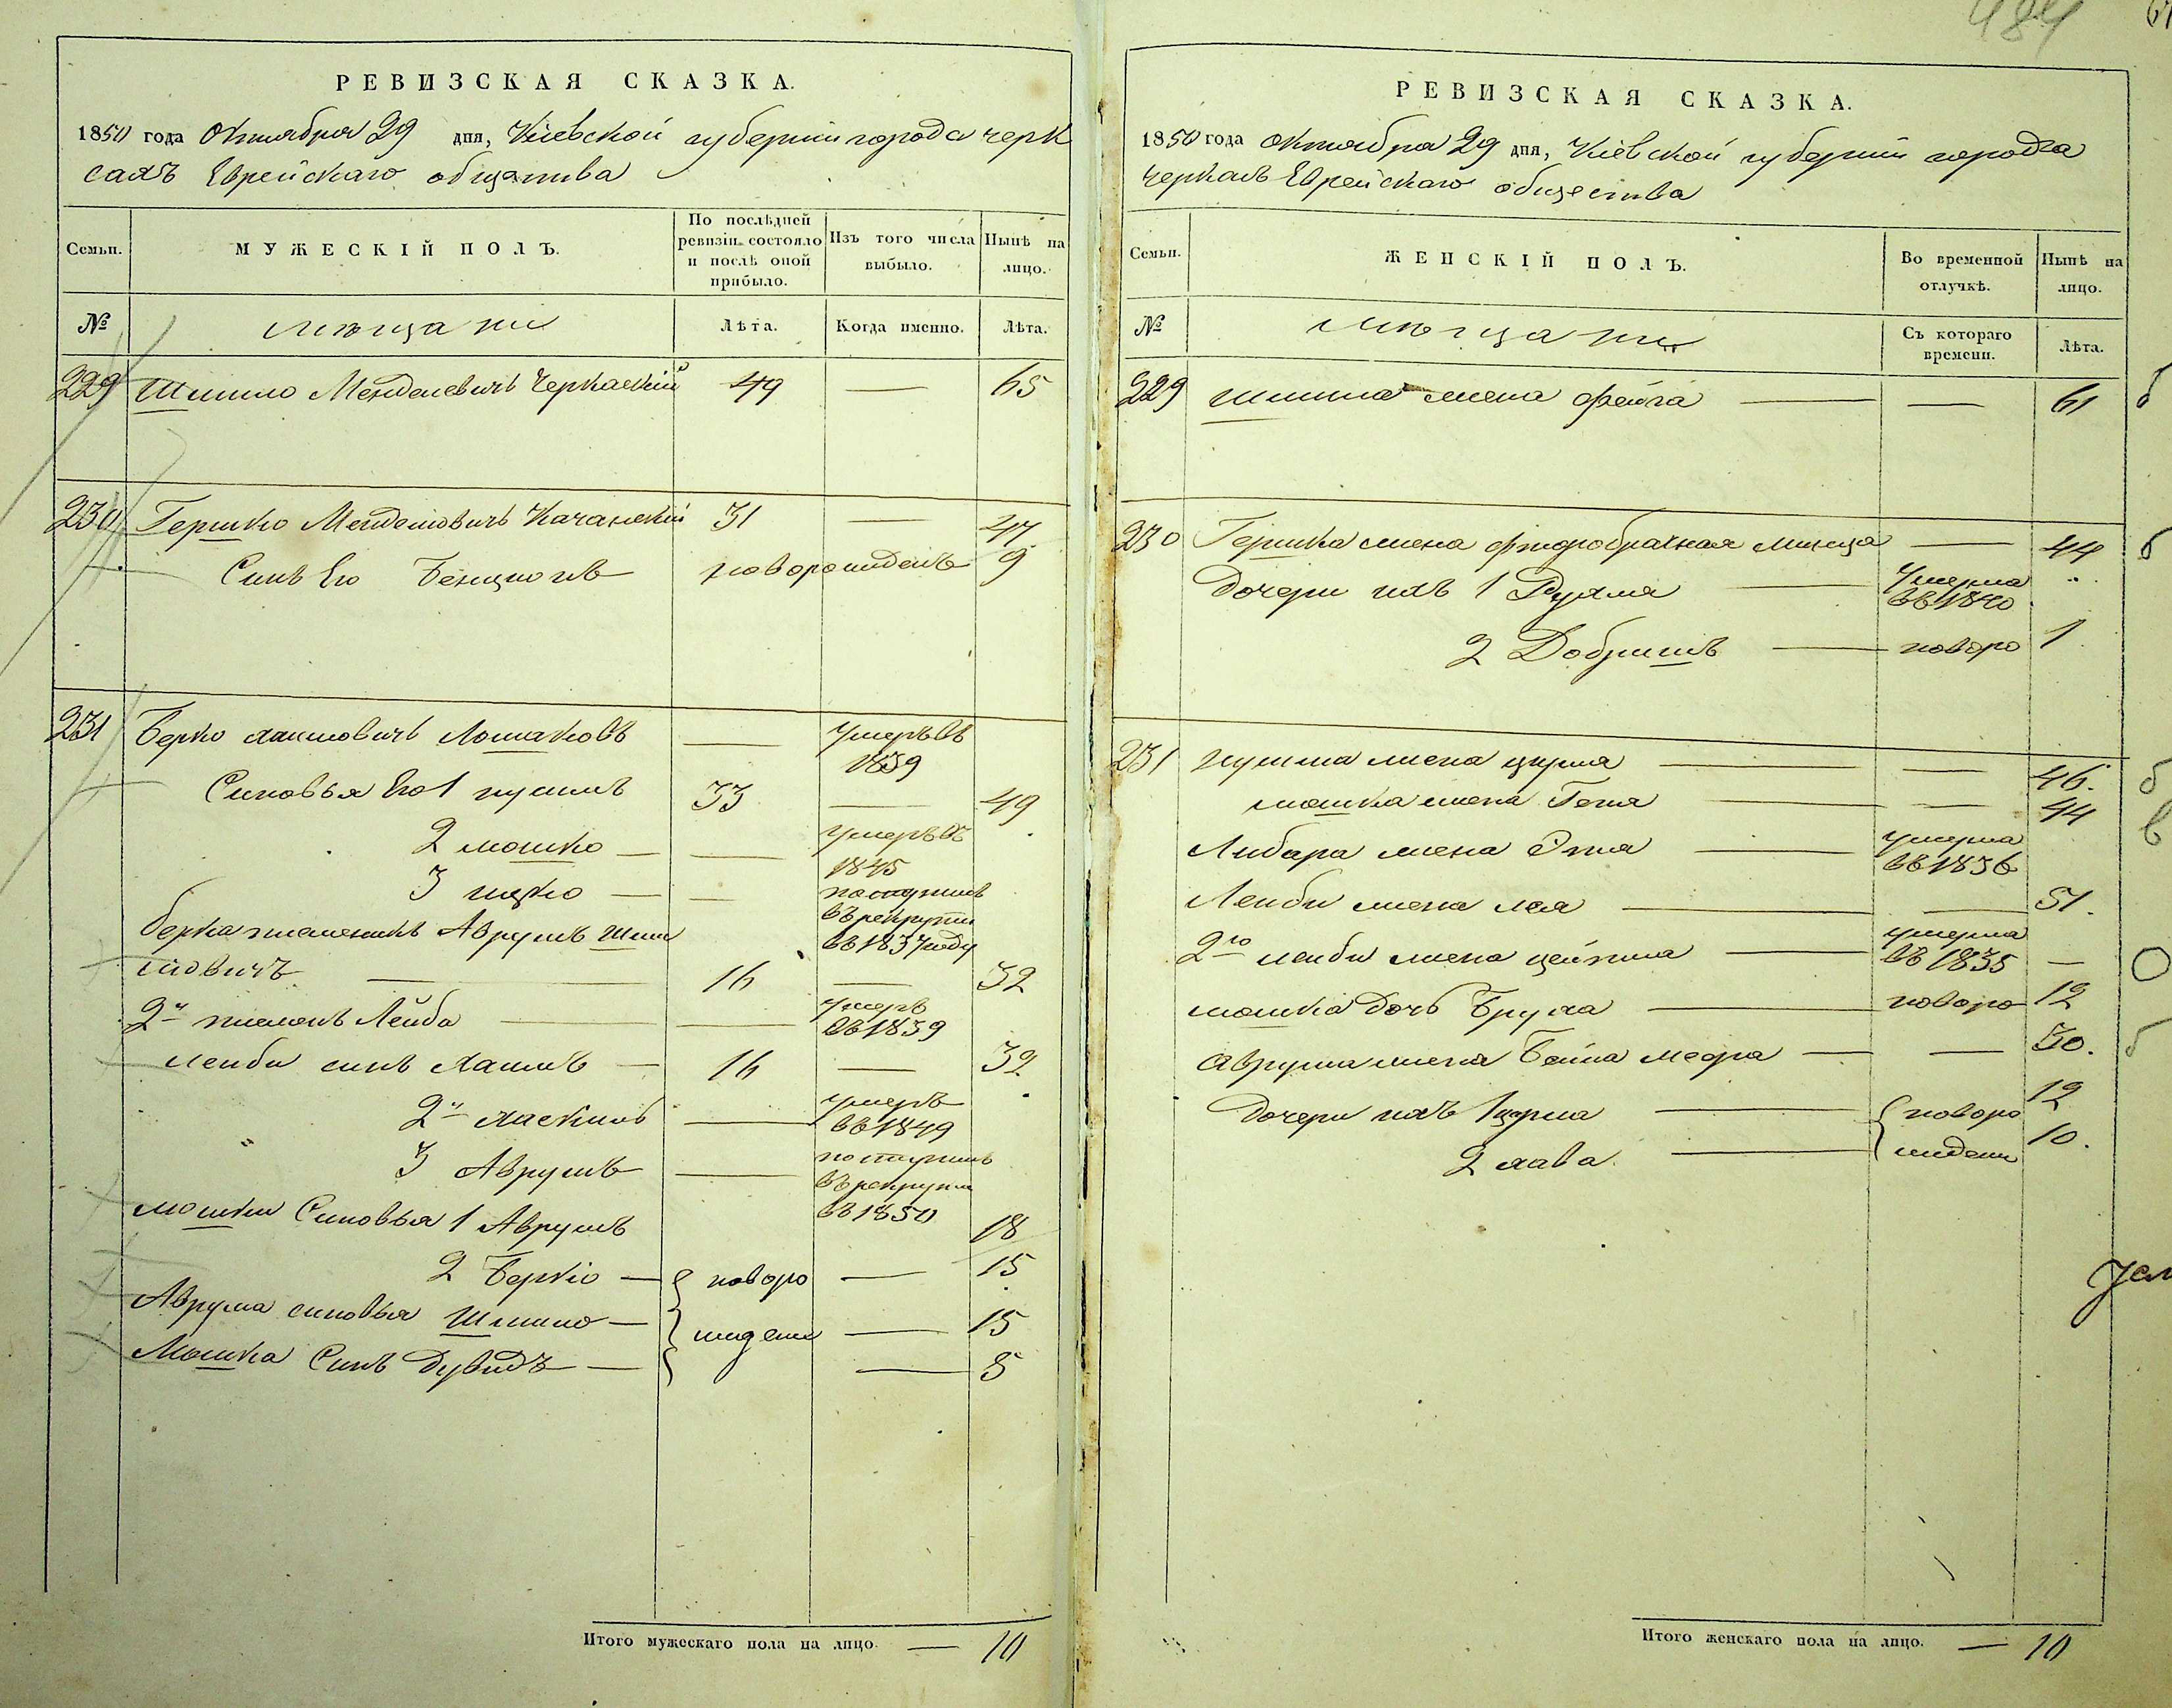 484
РЕВИЗСКАЯ СКАЗКА.
1850 года Октября 29 дня, Кіевской губерніи города Черк
сахъ Еврейскаго общества
Семьи.
МУЖЕСКІЙ ПОЛЪ.
По послѣдней ревизіи состояло и послѣ оной прибыло.
Изъ того числа выбыло.
Нынѣ на лицо.
№
мѣщани
Лѣта.
Когда именно.
Лѣта.
229 Шмило Менделевичъ Черкаскій 49 — 65
230 Гершко Менделовичъ Качанскій 31 — 47
Синъ Его Бенционъ новорожденъ 9
231 Берко Хаимовичъ Лошаковъ — умеръ въ 1839
Синовья Его 1 нухимъ 33 — 49
2 мошко — — умеръ въ 1845
3 ицко — — поступилъ въ рекруты въ 1837 году
берка племеникъ Аврумъ Шми
ловичъ — 16 — 32
2й племянъ Лейба — — умеръ въ 1839
лейби синъ Хаимъ — 16 — 32
2й хаскилъ — умеръ въ 1849
3 Аврумъ — поступилъ въ рекруты въ 1850
мошки Синовья 1 Аврумъ 18
2 Берко — новоро — 15
Аврума синовья Шмило — ждени — 15
Мошка Синъ Дувидъ — — 8
Итого мужескаго пола на лицо. — 10
РЕВИЗСКАЯ СКАЗКА.
1850 года октября 29 дня, Кіевской губерніи города
Черкасъ Еврейскаго общества
Семьи.
ЖЕНСКІЙ ПОЛЪ.
Во временной отлучкѣ.
Нынѣ на лицо.
№
мѣщани
Съ котораго времени.
Лѣта.
229 Шмила жена фейга — — 61
230 Гершка жена фтодобрачная Минца — 44
Дочери ихъ 1 Рухля — Умерла въ 1840
2 Добришъ — новоро 1
231 нухима жена цирля — — 46.
мошка жена Геня — — 44
Лейбара жена Етя — умерла въ 1836
Лейби жена лея — — 51.
2го лейби жена цейтля — умерла въ 1835 —
мошка дочъ Бруха — новоро 12
аврума жена Бейла медра — — 30.
дочери ихъ 1 цирля — новоро 12
2 хава. — ждени 10.
Итого женскаго пола на лицо. — 10